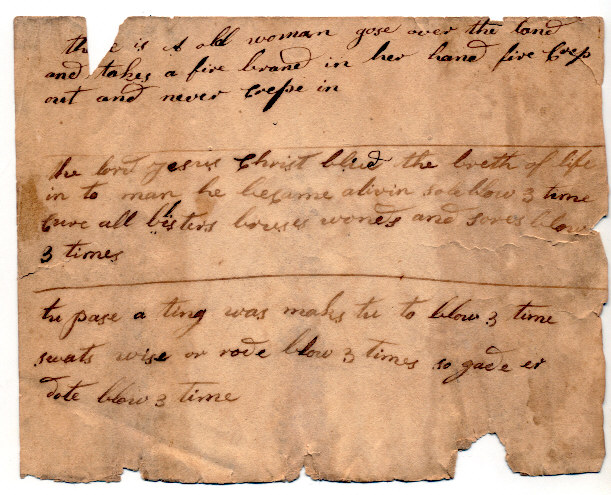 is A old woman gose over the land
and takes a fire brand in her hand fire Crep
out and never Crepe in
the lord jesus Christ bled the breth of life
in to man he became alivin sole blow 3 time
Cure all blisters bruses wonds and sores blow
3 times
tu pase a ting was mahs tu to blow 3 time
swats wise or rode blow 3 times so gade er
dote blow 3 time